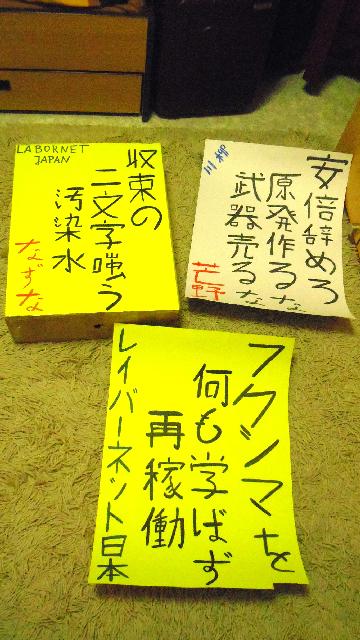 LABORNET
JAPAN
収束の
二文字嗤う
汚染水
なずな
川柳
安倍辞めろ
原発作るな
武器売るな
芒野
フクシマを
何も学ばず
再稼働
レイバーネット日本